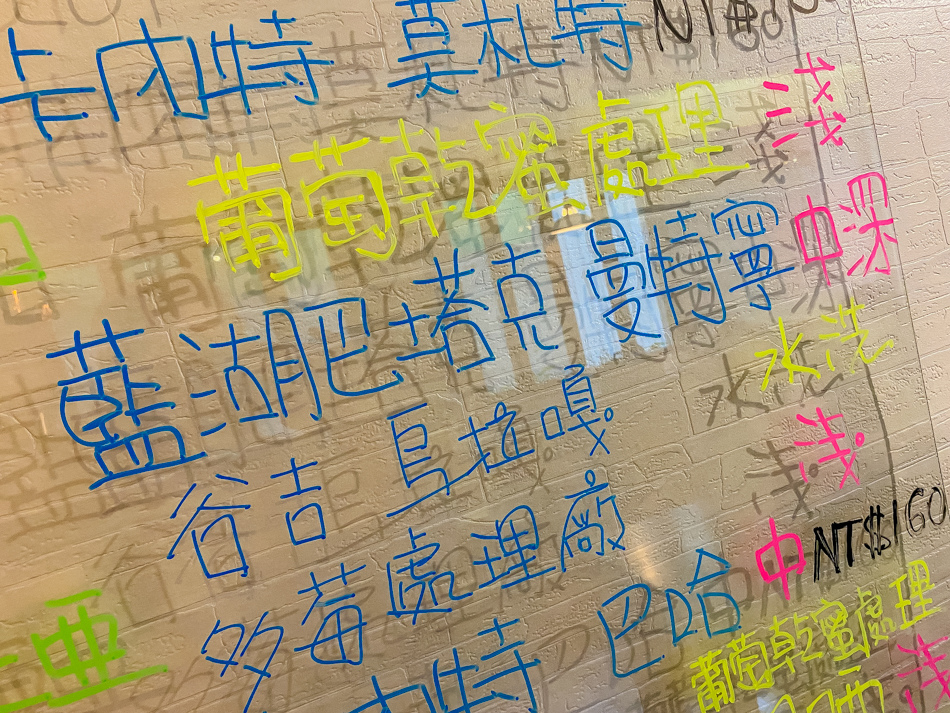 卡內特 莫札特 NT$
葡萄乾蜜處理 淺
藍湖肥塔克 曼特寧 中深
水洗
谷吉 烏拉嘎 淺
多莓處理廠 中 NT$160
內特 巴哈 葡萄乾蜜處理
亞
淺